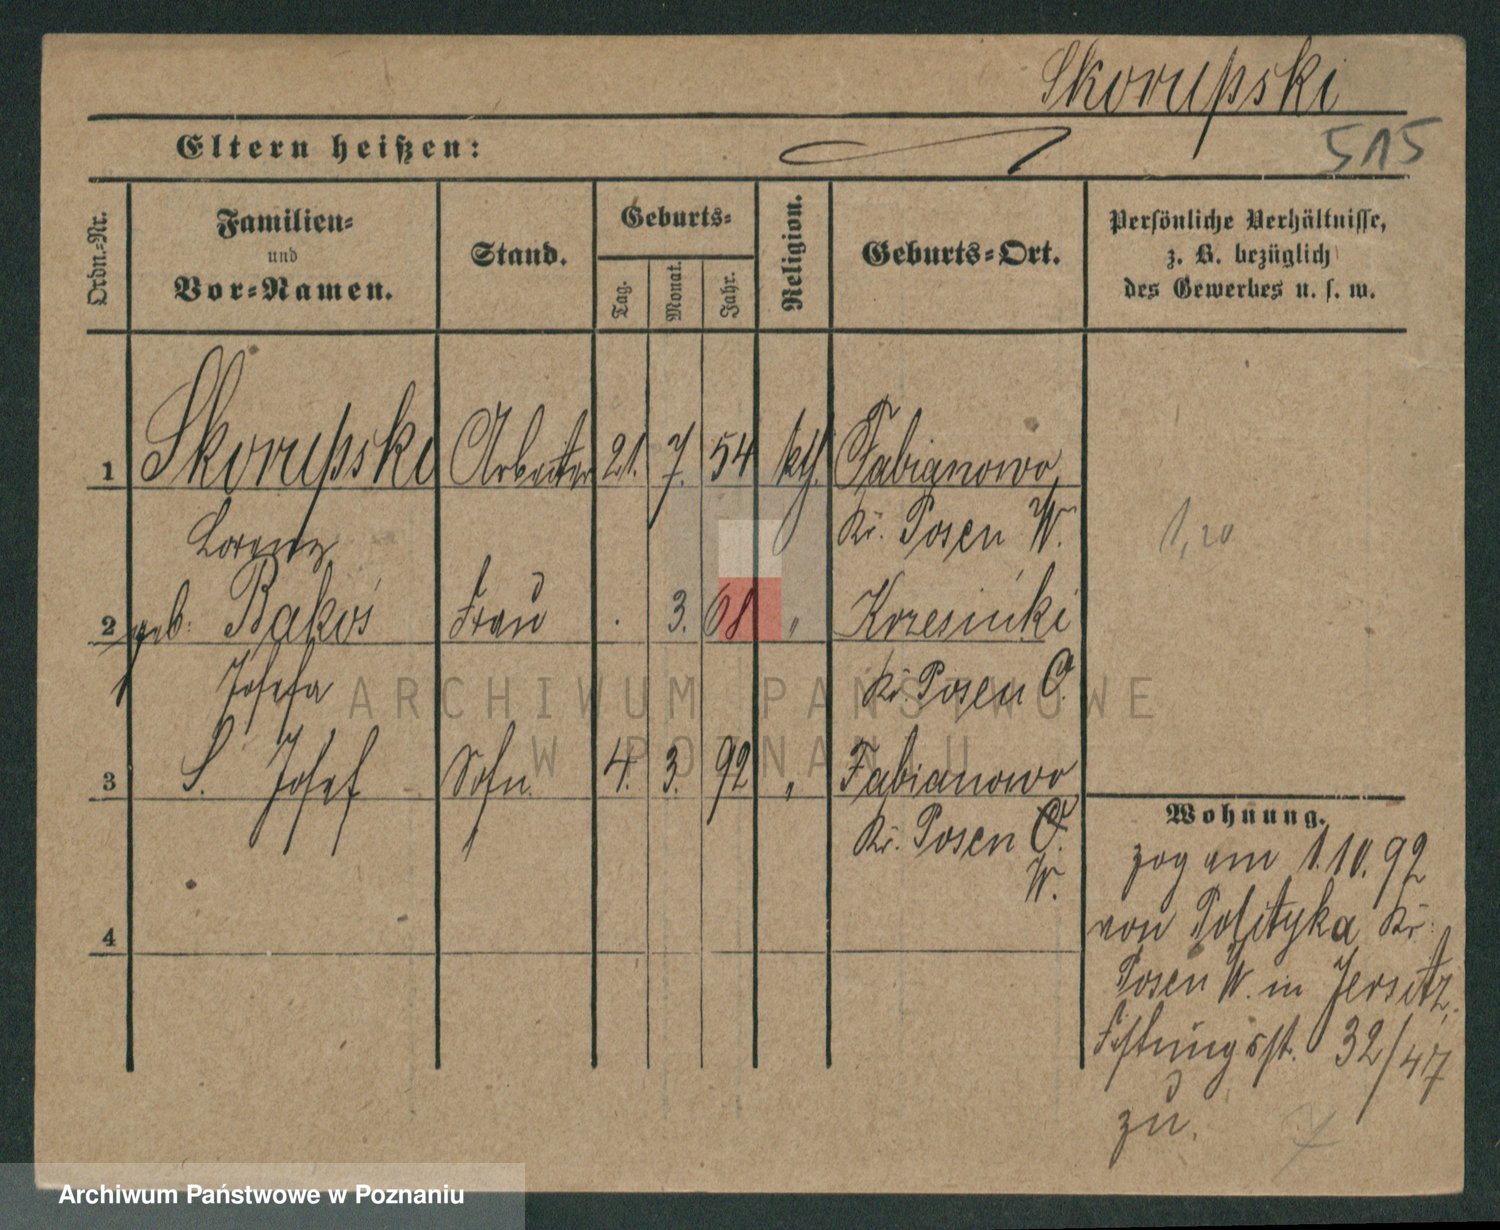 Skorupski
Eltern heißen:
515
Ordn.-Nr.
Familien-
und
Vor-Namen.
Stand.
Geburts-
Tag.
Monat.
Jahr.
Religion.
Geburts-Ort.
Persönliche Verhältnisse,
z. B. bezüglich
des Gewerbes u. s. w.
1 Skorupski Arbeiter 21. 7. 54 kth. Fabianowo
Lorenz Kr. Posen W.
1,20
2 geb. Bakoś Frau . 3. 68 " Krzesinki
Josefa Kr. Posen O.
3 S. Josef Sohn. 4. 3. 92 " Fabianowo
Kr. Posen O.
W.
4
Wohnung.
zog am 1.10.92
von Kr.
Posen W. in Jersitz,
32/47
zu.
ARCHIWUM PAŃSTWOWE
W POZNANIU
Archiwum Państwowe w Poznaniu